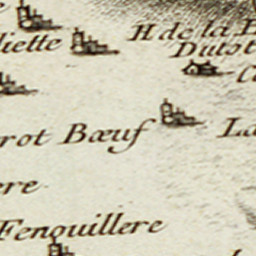 liette
H de la
Dutot
rot Bœuf
La
ere
Fenouillere